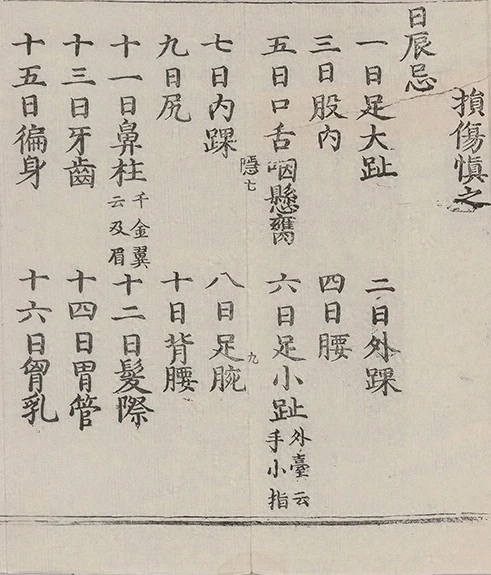 損傷慎之
日辰忌
一日足大趾 二日外踝
三日股內 四日腰
五日口舌咽懸癰 六日足小趾 外臺云手小指
隱七
七日內踝 八日足腕
九
九日尻 十日背腰
十一日鼻柱 千金翼云及眉 十二日髮際
十三日牙齒 十四日胃管
十五日徧身 十六日胷乳